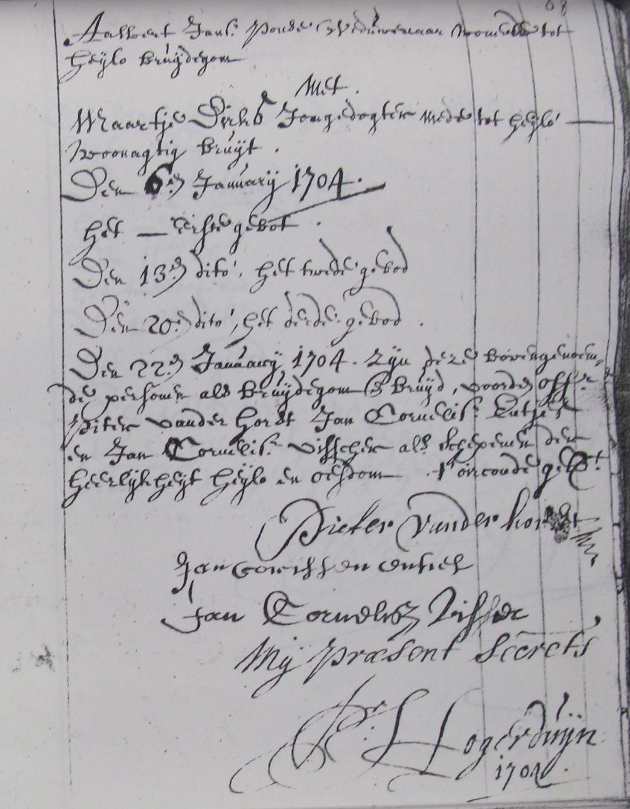 Aalbert Jans: Ponde Weduwenaar woonende tot
heijlo bruijdegom
Met.
Maartje Dirks Jongedogter mede tot heijlo
woonagtig bruijt.
Den 6en Januarij 1704.
het — eerste gebot.
Den 13en dito, het twede gebod
Den 20en dito, het derde gebod.
Den 22en Januarij 1704. Zijn deze bovengenoem-
de persoonen als bruijdegom & bruijd, voor den off:r
Piter vander horst Jan Cornelis:
en Jan Cornelis: visscher als Schepenen der
heerlijkheijt heijlo en oesdom. T'oirconde get:
Pieter vander horst
Jan
Jan Cornelisz Visscher
Mij præsent Secrets
Logerduijn
1704.